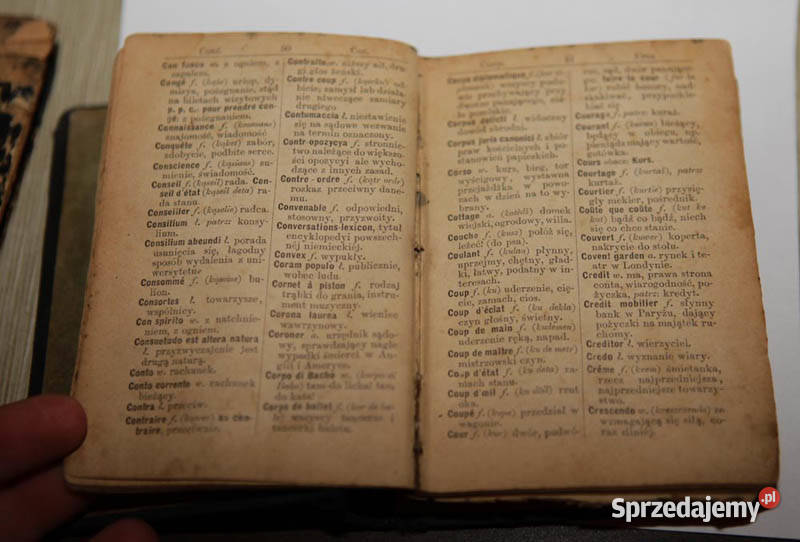 Conf. 50 Con.
Con fuoco w. z ogniem, z
zapałem.
Congé f. (kąże) urlop, dy-
misya, pożegnanie, stąd
na biletach wizytowych
p. p. c. pour prendre con-
gé: z pożegnaniem.
Connaissance f.
znajomość, wiadomość
Conquête f. (kąket) zabór,
zdobycie, podbite serce.
Conscience f. (kąsians) su-
mienie, świadomość.
Conseil f. (kąseil) rada. Con-
seil d'état (kąseil deta) ra-
da stanu.
Conseiller f. (kąselie) radca.
Consilium ł. patrz konsy-
lium.
Consilium abeundi ł. porada
usunięcia się, łagodny
sposób wydalenia z uni-
wersytetu
Consommé f. (kąsome) bu-
lion.
Consortes ł. towarzysze,
wspólnicy.
Con spirito w. z natchnie-
niem, z ogniem.
Consuetudo est altera natura
ł. przyzwyczajenie jest
drugą naturą.
Conto w. rachunek.
Conto corrente w. rachunek
bieżący.
Contra ł. przeciw.
Contraire f. au con-
traire, przeciwnie.
Contralto w. niższy alt, dru-
gi głos żeński.
Contre coup f. (kątrku) od-
bicie; zamysł lub działa-
nie niweczące zamiary
drugiego
Contumaccia ł. niestawienie
się na sądowe wezwanie
na termin oznaczony.
Contr-opozycya f. stronnic-
two należące do większo-
ści opozycyi ale wycho-
dzące z innych zasad.
Contre-ordre f. (kątr ordr)
rozkaz przeciwny dane-
mu.
Convenable f. odpowiedni,
stosowny, przyzwoity.
Conversations-lexicon, tytuł
encyklopedyi powszech-
nej niemieckiéj.
Convex f. wypukły.
Coram populo ł. publicznie,
wobec ludu.
Cornet à piston f. rodzaj
trąbki do grania, instru-
ment muzyczny.
Corona laurea ł. wieniec
wawrzynowy.
Coroner a. urzędnik sądo-
wy, sprawdzający nagłe
wypadki śmierci w An-
glii i Ameryce.
Corpo di Bacho w. (korpo di
Bako) tam do licha! tam
do kata!
Corps de ballet f. (kor de ba-
le) wszyscy tancerze i
tancerki baletu.
Corp.
Corps diplomatique f.
wszyscy posło-
wie przebywający przy
dworze panującego, cia-
ło poselskie.
Corpus delicti ł. widoczny
dowód zbrodni.
Corpus juris canonici ł. zbiór
praw kościelnych i po-
stanowień papieskich.
Corso w. kurs, bieg, tor
wyścigowy, wystawna
przejażdżka w powo-
zach w dzień na to wy-
brany.
Cottage a. (kotidż) domek
wiejski, ogrodowy, willa.
Coucho f. (kusz) połóż się,
leżéć! (do psa).
Coulant f. (kulan) płynny,
uprzejmy, chętny, gład-
ki, łatwy, podatny w in-
teresach.
Coup f. (ku) uderzenie, cię-
cie, zamach, cios.
Coup d'éclat f. (ku dekla)
czyn głośny, świetny.
Coup de main f. (kudemen)
uderzenie ręką, napad.
Coup de maître f. (ku de metr)
mistrzowski czyn.
Coup d'état f. (ku deta) za-
mach stanu.
Coup d'œil f. (ku döil) rzut
oka.
Coupé f. (kupe) przedział w
wagonie.
Cour f. (kur) dwór, podwó-
rze, sąd, dwór panujące-
go. faire la cour (fer la
kur) robić honory, nad-
skakiwać, przypochle-
biać się
Courage f. patrz kuraż.
Courant f. (kuran) bieżący,
będący w obiegu, np.
pieniądz mający wartość,
gotówka.
Cours obacz Kurs.
Courtage f. (kurtaż), patrz
kurtaż.
Courtier f. (kurtie) przysię-
gły mekler, pośrednik.
Coûte que coûte f. (kut ke
kut) bądź co bądź, niech
się co chce stanie.
Couvert f. (kuwer) koperta,
nakrycie do stołu.
Covent garden a. rynek i te-
atr w Londynie.
Credit w. ma, prawa strona
conta, wiarogodność, po-
życzka, patrz: kredyt.
Crédit mobilier f. słynny
bank w Paryżu, dający
pożyczki na majątek ru-
chomy.
Creditor ł. wierzyciel.
Credo ł. wyznanie wiary.
Crême f. (krem) śmietanka,
rzecz najprzedniejsza,
najprzedniejsze towarzy-
stwo.
Crescendo w. (kreszczendo) ze
wzmagającą się siłą, co-
raz silniéj.
Sprzedajemy.pl